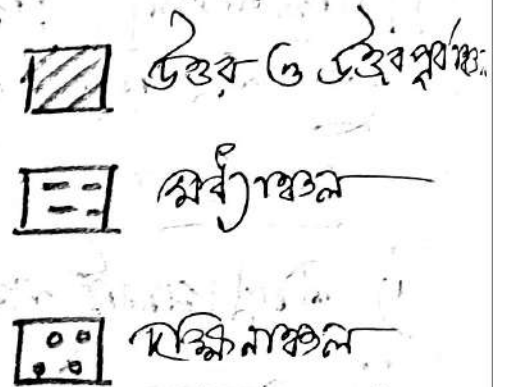 উত্তর ও উত্তরপূর্বাঞ্চ..
মধ্যাঞ্চল
দক্ষিনাঞ্চল